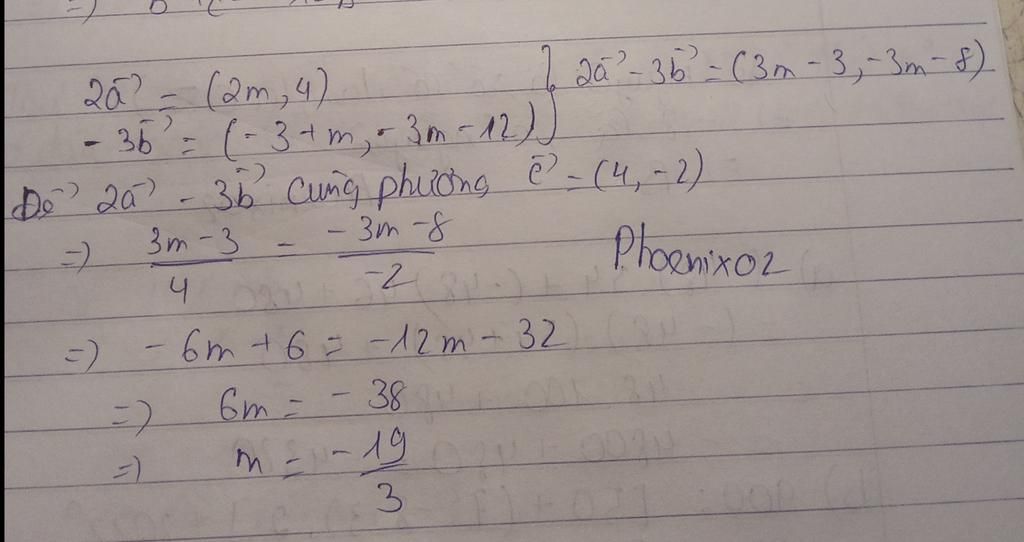 2a⃗ = (2m, 4)
- 3b⃗ = (-3+m, -3m-12)
} 2a⃗ - 3b⃗ = (3m - 3, -3m - 8)
Để 2a⃗ - 3b⃗ cùng phương c⃗ = (4, -2)
=> \frac{3m-3}{4} = \frac{-3m-8}{-2}
Phoenix02
=> - 6m + 6 = -12m - 32
=> 6m = - 38
=> m = - \frac{19}{3}